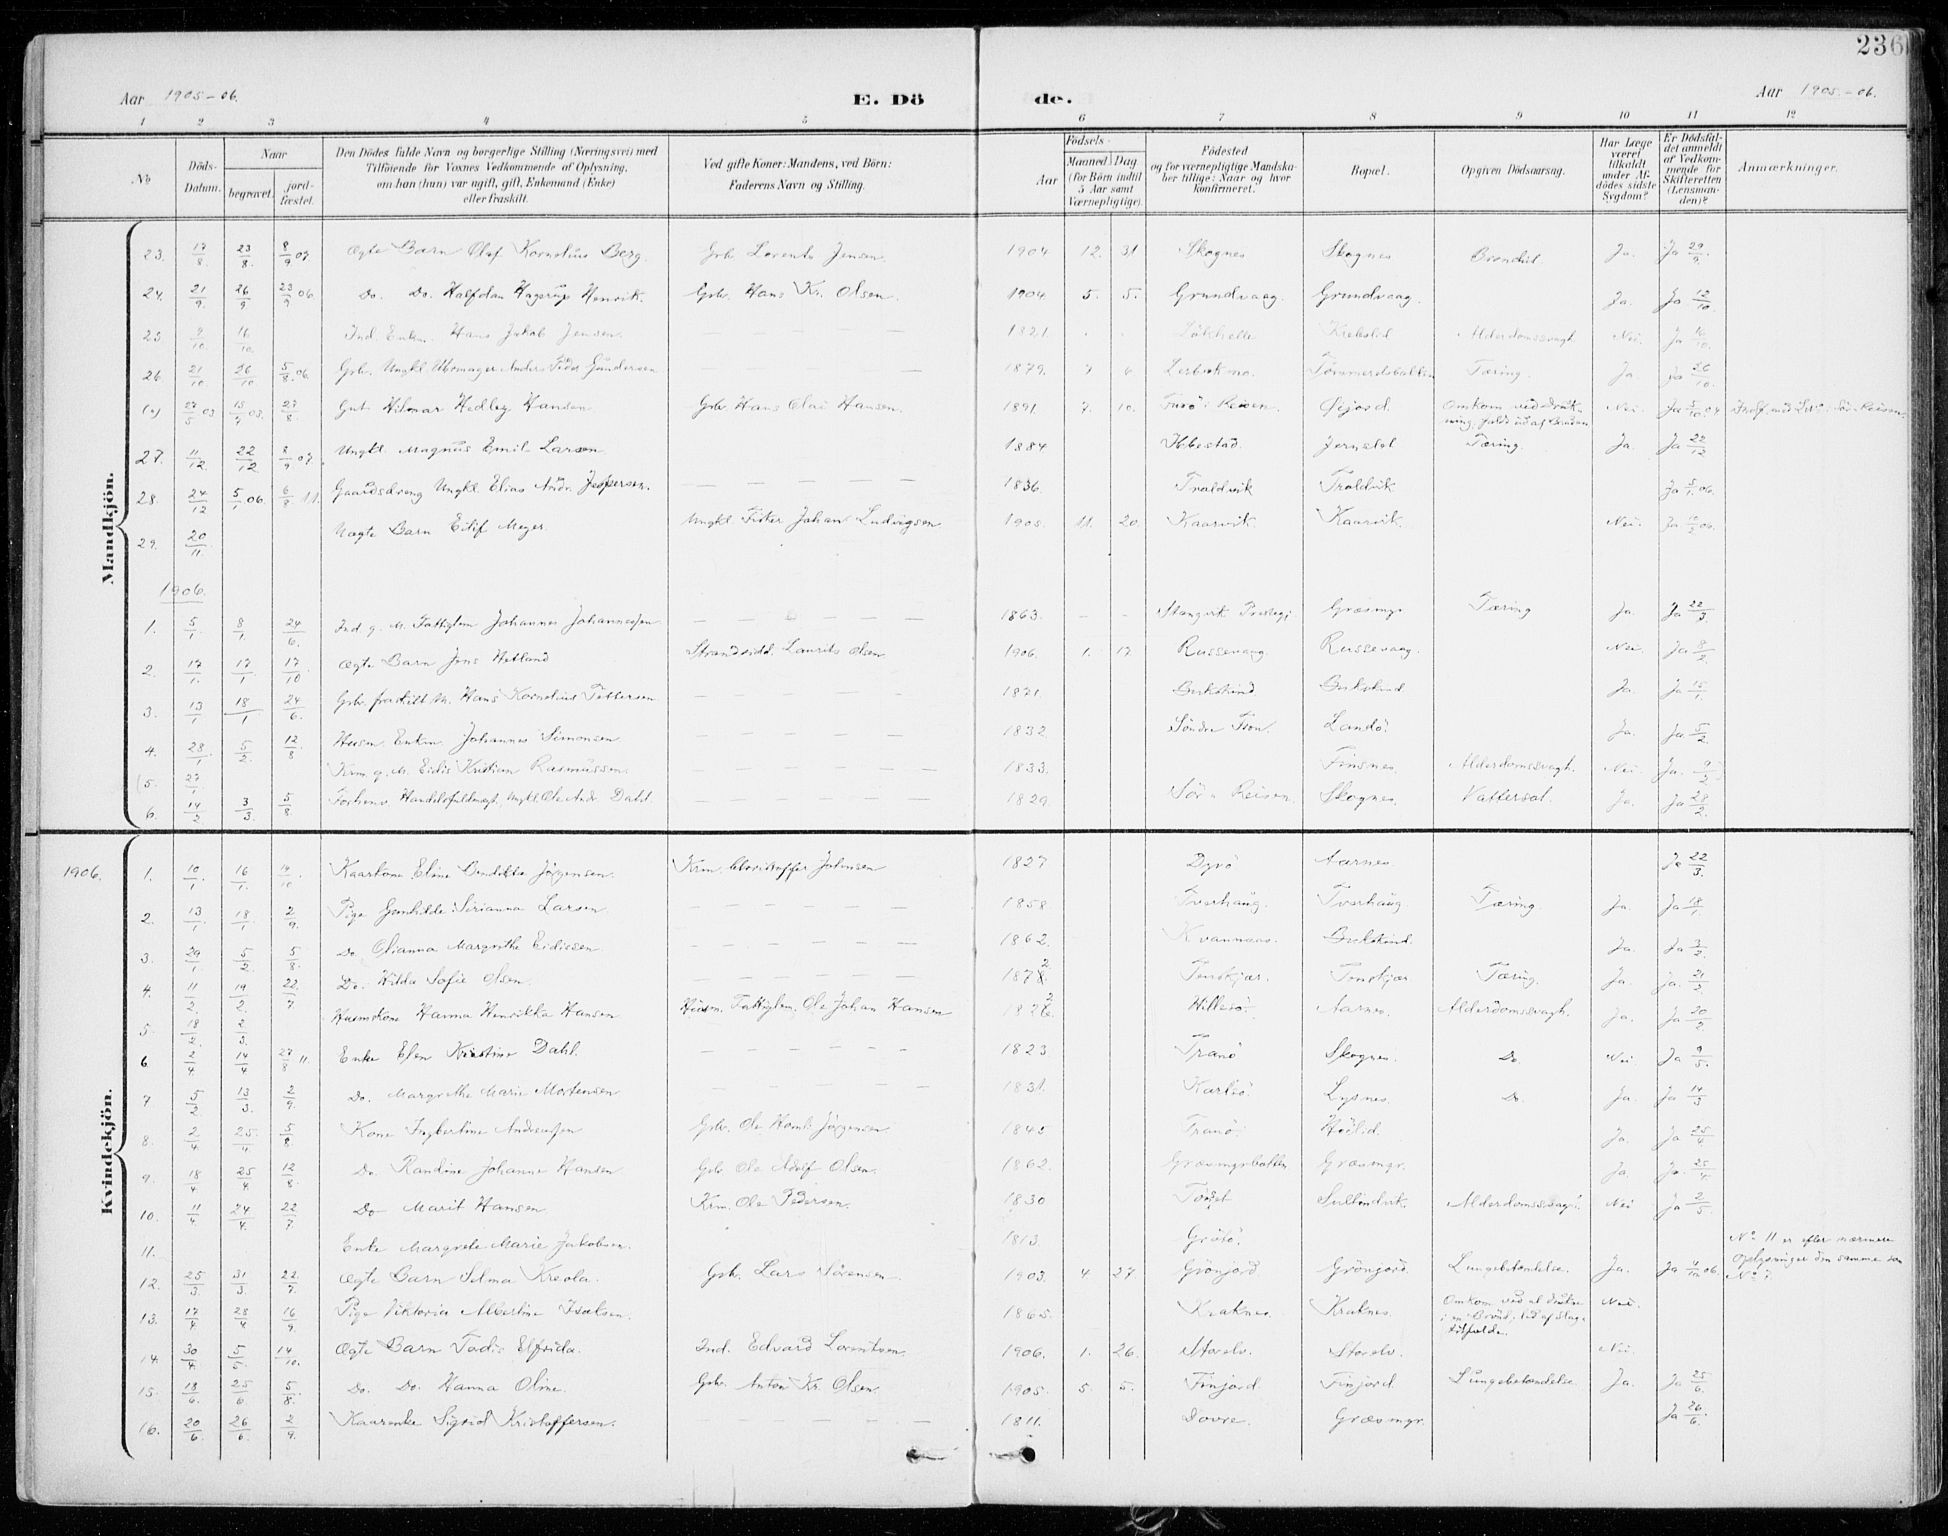 236
Aar 1905-06. E. Dö de. Aar 1905-06.
1 2 3 4 5 6 7 8 9 10 11 12
No Döds-Datum. Naar begravet. jordfæstet. Den Dödes fulde Navn og borgerlige Stilling (Næringsvei) med Tilföiende for Voxnes Vedkommende af Oplysning, om han (hun) var ugift, gift, Enkemand (Enke) eller fraskilt. Ved gifte Koner: Mandens, ved Börn: Faderens Navn og Stilling. Födsels- Aar Maaned Dag (for Börn indtil 5 Aar samt Værnepligtige). Födested og for værnepligtige Mandskaber tillige: Naar og hvor konfirmeret. Bopæl. Opgiven Dödsaarsag. Har Læge været tilkaldt under Afdödes sidste Sygdom? Er Dödsfaldet anmeldt af Vedkommende for Skifteretten (Lensmanden)? Anmærkninger.
Mandkjön.
23. 17/8. 23/8. 8/9 07. Ægte Barn Olaf Kornelius Berg. Grb. Lorents Jensen. 1904 12. 31 Skognes Skognes Ja. Ja 29/9.
24. 21/9. 26/9 23/9 06. Do. Do. Halfdan Hagerup Henrik. Grb. Hans Kr. Olsen. 1904. 5. 5. Grundvaag. Grundvaag. Ja. Ja 12/10.
25 9/10. 16/10. Ind. Enkm. Hans Jakob Jensen. — — — 1821. Alderdomssvagh. Nei. Ja 16/10.
26. 21/10 26/10 5/8. 06. Grb. Ungkl. Anders Peder Gundersen 1879. 7 6 Tömmerelvbakken Tæring. Ja. Ja 26/10.
27/5 05 15/9 05. 27/8 Gut Hilmar Hedley Hansen Grb Hans Olai Hansen. 1891. 7. 10. Reisen. Öijord. Omkom ved Druk-
ning, faldt ud af Baaden Nei. Ja
27. 11/12. 22/12 8/9 07. Ungkl. Magnus Emil Larsen 1884 Ibbestad. Jernslet Tæring. Ja. Ja 22/12
28. 24/12 5/1. 06. 6/8 11. Gaardsdreng Ungkl. Elias Andr. Jespersen. — — — 1836. Troldvik Troldvik Ja 5/1. 06.
29. 20/11. Uægte Barn Eilif Meyer. Ungkl. Fisker Johan Ludvigsen 1905. 11. 20. Kaarvik. Kaarvik. Nei. Ja
1906.
1. 5/1. 8/1. 24/6. Ind. g. M. Fattiglem Johannes Johannessen — — — 1863. — — Stangvik Prestegj. Græsmyr Tæring Ja. Ja 22/3.
2. 17/1. 17/1 17/10. Ægte Barn Jens Hetland Strandsidd. Laurits Olsen 1906. 1. 17. Russevaag. Russevaag. Nei. Ja 8/2.
3. 13/1 18/1 24/6. Grb. fraskilt M. Hans Kornelius Pettersen — — — 1871. Gukskind. Gukskind Ja. Ja 15/1.
4. 28/1. 5/2. 12/8 Husm. Enkm. Johannes Simonsen — — — 1832. Söndre Fron. Landö. Ja. Ja 5/2
(5. 27/1. Krm. g. M. Eidis Kristian Rasmussen. — — — 1833. Finsnes Alderdomssvagh. Nei. Ja.
6. 14/2 3/3. 5/8. Forhenv. Handelsfuldmægt. Ungkl. Ole Andr. Dahl. — — — 1829. Sör Reisen. Skognes. Vattersot. Ja. Ja 28/2.
Kvindekjön.
1906. 1. 10/1. 16/1. 14/10. Kaarkone Eline Bendikte Jörgensen. Krm. Christoffer Johnsen 1827 Dyrö Aarnes. Ja 22/3.
2. 13/1. 18/1. 2/9. Pige Gunhilde Sirianna Larsen. — — — 1858. Tverhaug. Tverhaug. Tæring. Ja. Ja 18/1.
3. 29/1 5/2. 5/8. Do. Olianna Margrethe Eidissen — — — 1862. Kvannaas. Gukskind. Ja. Ja 3/2.
4. 11/2. 19/2. 22/7 Do. Hilda Sofie Olsen. — — — 1878. 2 Tenskjær. Tenskjær Tæring. Ja. Ja. 21/3.
5. 18/2. 2/3. Husmskone Hanna Henrikka Hansen Husm. Fattiglem. Ole Johan Hansen 1826. 2 Hillesö. Aarnes. Alderdomssvagh. Ja. Ja 20/2.
6 2/4. 14/4 27/8 11 Enke Elen Kristine Dahl. — — — 1823 Tranö Skognes. Do Nei Ja 9/5.
7 5/2 13/3. 2/9. Do. Margrethe Marie Mortensen — — — 1831. Karlsö. Lysnes. Do. Ja. Ja 14/3
8. 2/4. 25/4. 5/8 Kone Ingbertine Andreassen Grb. Ole Jörgensen 1845 Tranö. Ja. Ja 25/4.
9. 18/4. 25/4. 12/8. Do. Randine Johanne Hansen Grb. Ole Adolf Olsen. 1862. Græsmyrbakken Græsmyr. Ja. Ja. 25/4
10. 11/4. 24/4. 22/7. Do Marit Hansen Krm. Ole Pedersen. 1830 Alderdomssvagh. Nei Ja 2/5.
11. Enke Margrete Marie Jakobsen. 1813 Grötö. No 11 er efter nærmere
Oplysninger den samme som
No 7.
12. 25/3 31/3. 22/7. Ægte Barn Selma Kreola. Grb. Lars Sörensen 1903. 4 27. Grönjord Grönjord. Lungebetændelse. Ja. Ja 06.
13. 17/4 28/4 16/9. Pige Viktoria Albertine Isaksen. 1865. Kraknes. Kraknes. Omkom ved at drukne
i en Brönd; led af Slag-
tilfælde. Nei.
14. 30/4. 5/5. 14/10. Ægte Barn Elfrida. Ind. Edvard Lorentsen 1906. 1. 26. Storelv. Storelv. Nei.
15. 18/6. 25/6 5/8. Do. Do. Hanna Oline. Grb. Anton Kr. Olsen. 1905. 5. 5. Finjord. Finjord. Lungebetændelse Ja. Ja 25/6.
16. 20/6 26/6. 2/9. Kaarenke Sigrid Kristoffersen. — — — 1811. Dovre. Græsmyr. Ja 26/6.